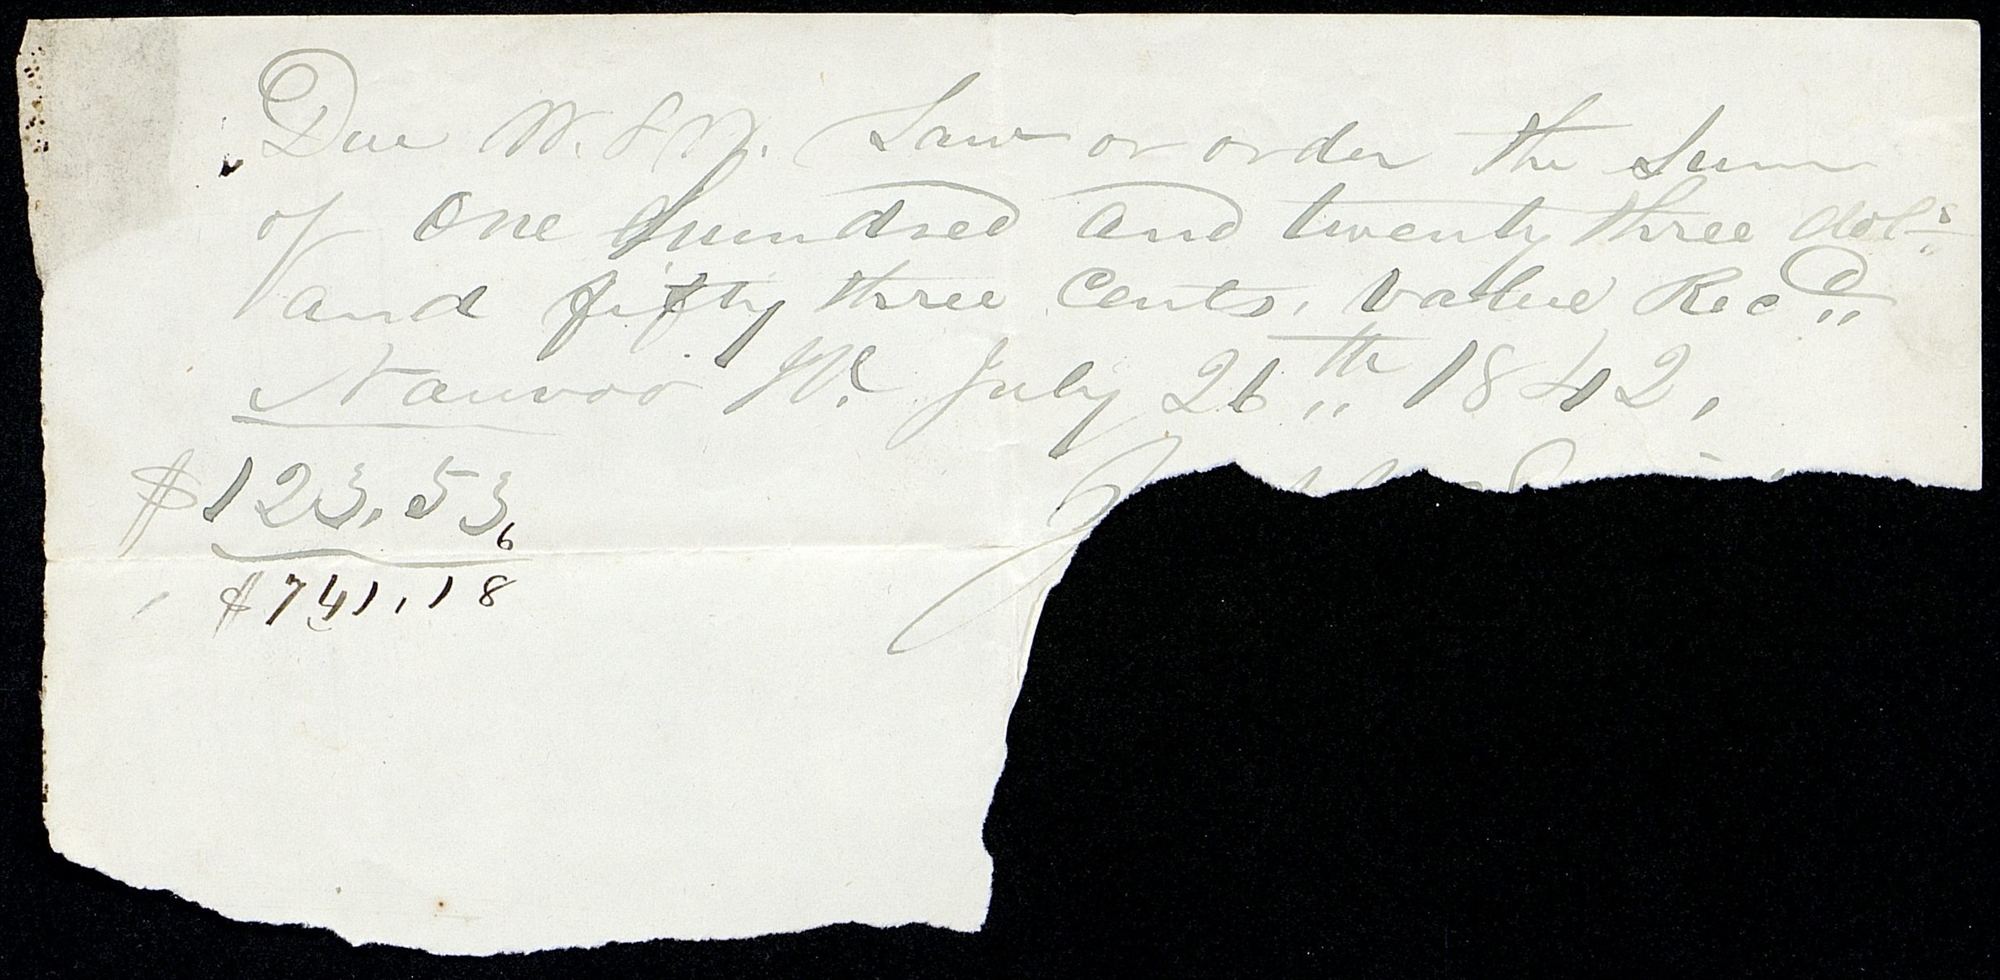 Due W. & W. Law or order the Sum
of One Hundred and twenty three dols
and fifty three Cents, value Recd
Nauvoo Ill. July 26th 1842,
$123.53
6
$741.18